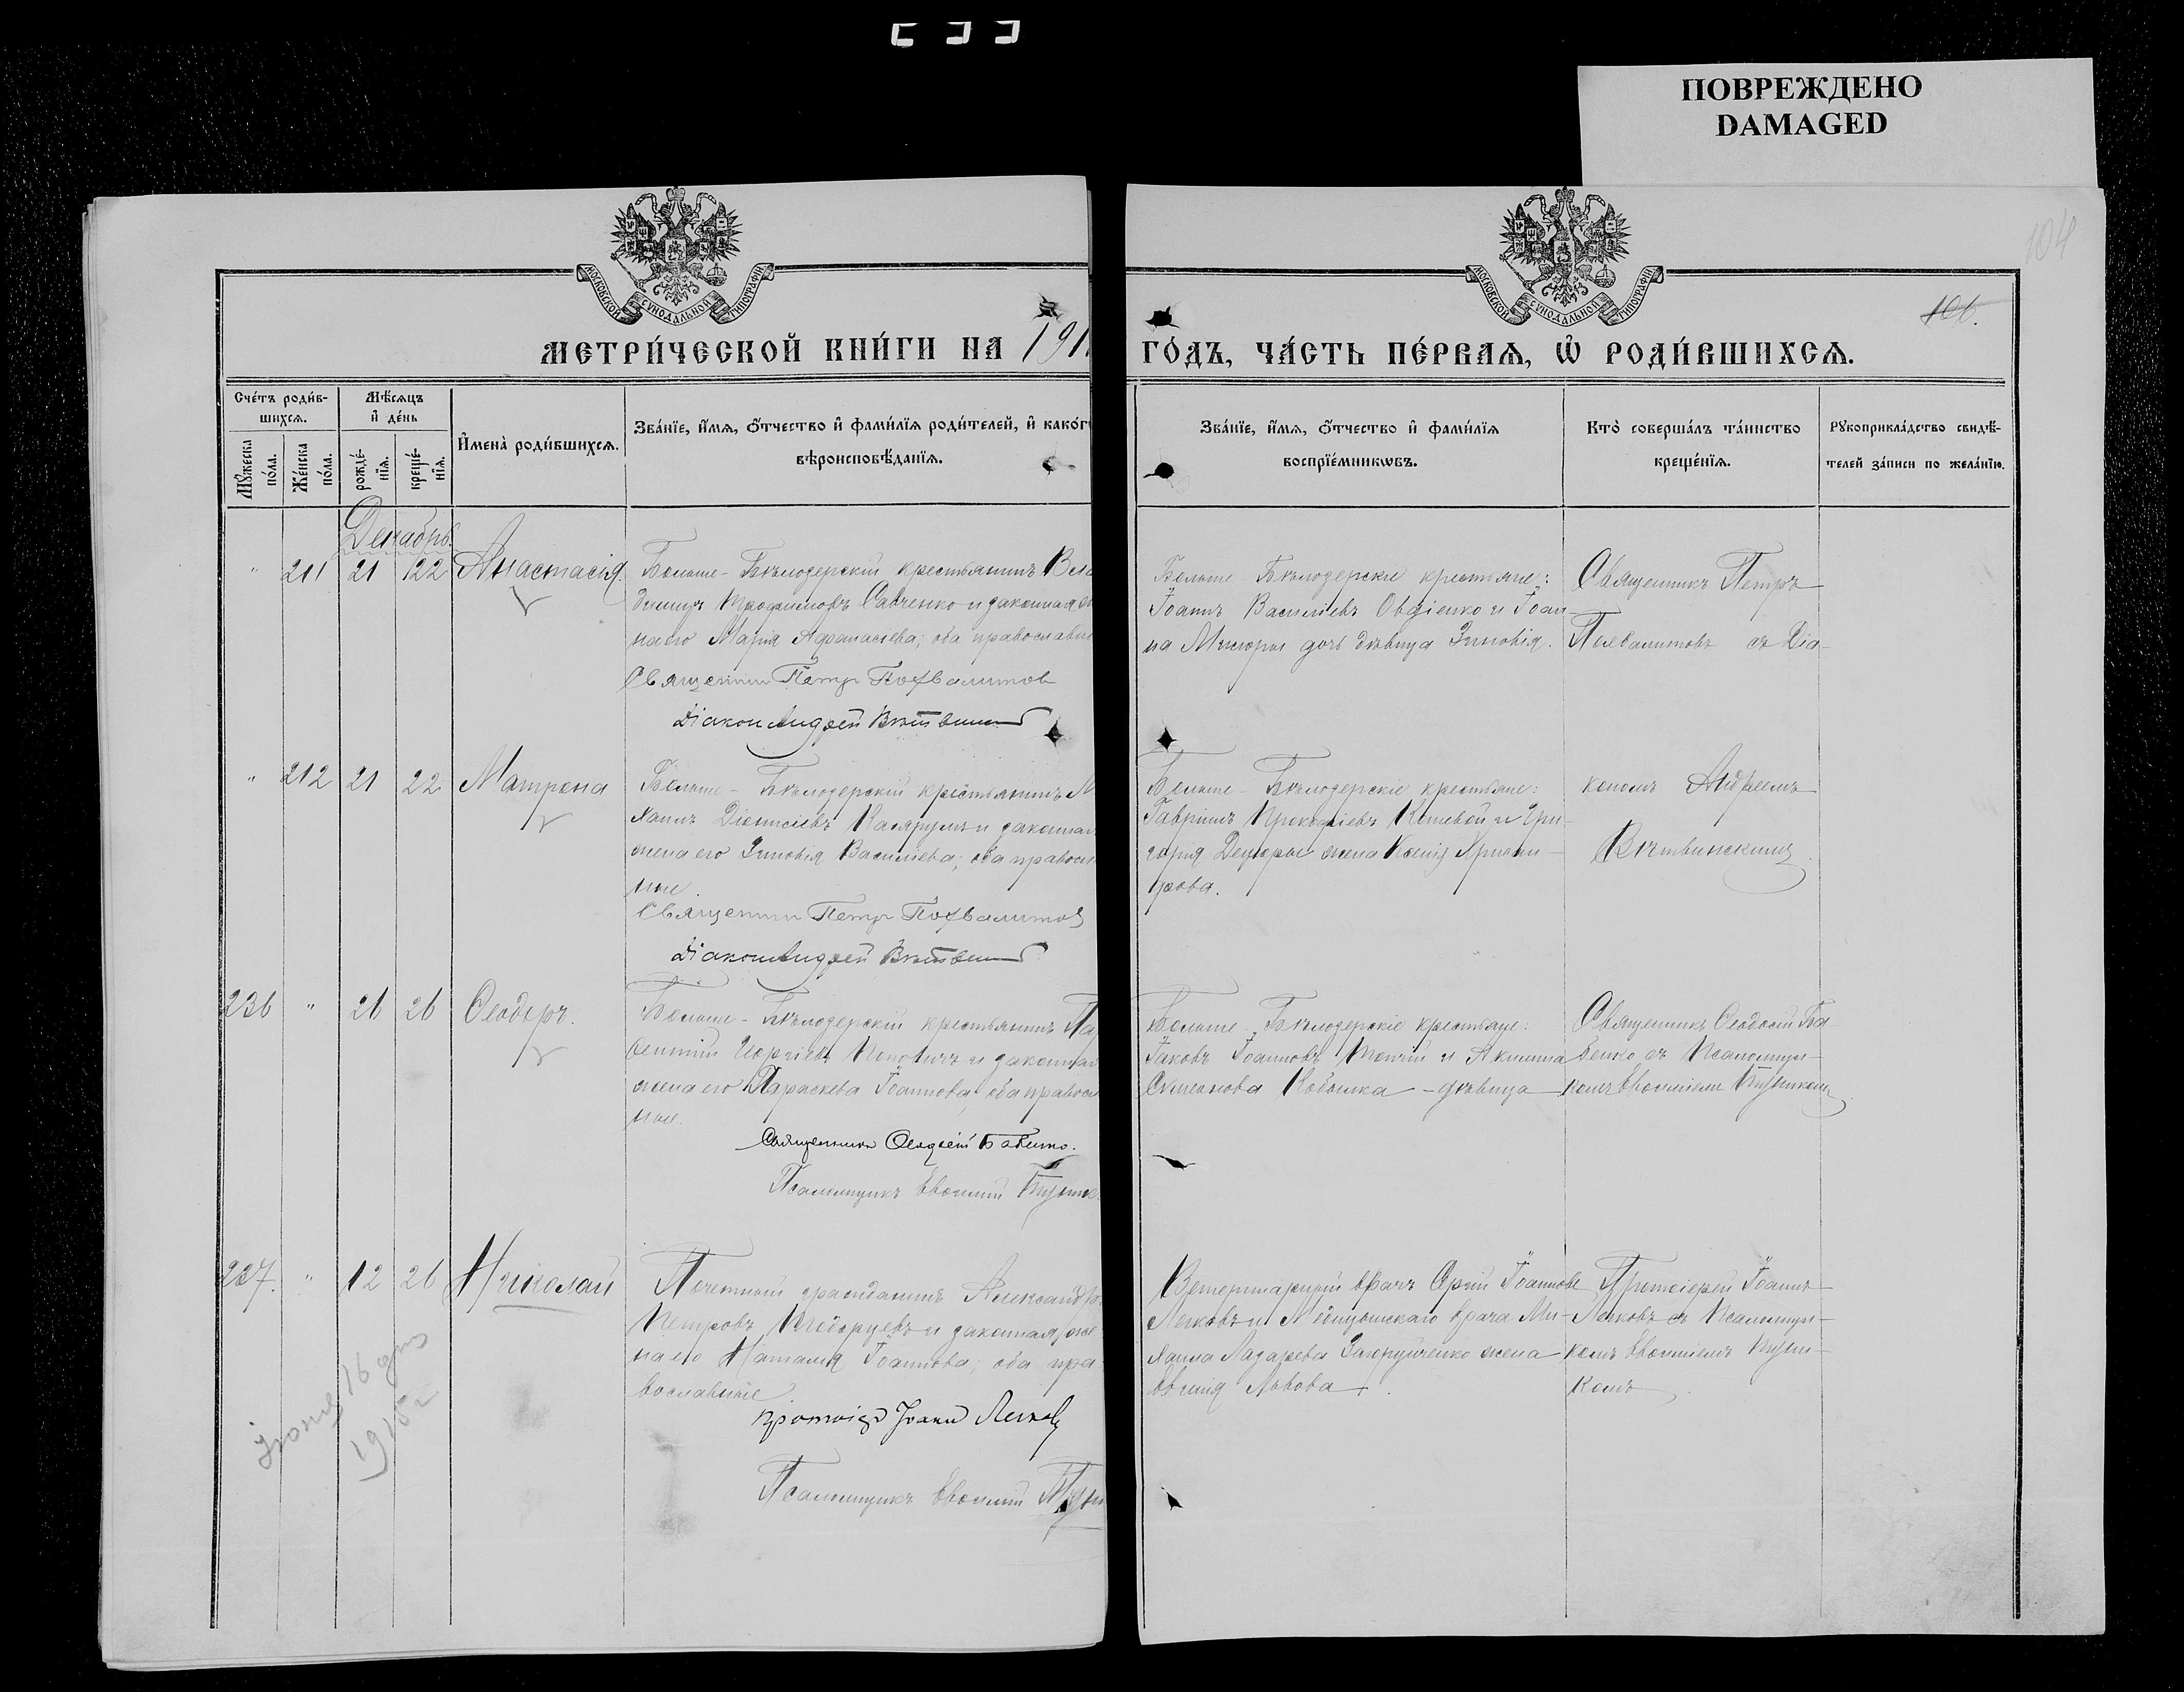 ПОВРЕЖДЕНО
DAMAGED
104
МОСКОВСКОЙ СѴНОДАЛЬНОЙ ТИПОГРАФІИ
МОСКОВСКОЙ СѴНОДАЛЬНОЙ ТИПОГРАФІИ
106.
МЕТРИ́ЧЕСКОЙ КНИ́ГИ НА 191
ГО́ДЪ, ЧА́СТЬ ПЕ́РВАѦ, Ѡ҆ РОДИ́ВШИХСѦ.
Сче́тъ роди́в-
шихсѧ.
Мѣ́сѧцъ
и҆ де́нь
Мꙋ́жеска
по́ла.
Же́нска
по́ла.
рожде́-
нїѧ.
креще́-
нїѧ.
И҆мена̀ роди́вшихсѧ.
Зва́нїе, и҆́мѧ, ѻ҆́тчество и҆ фами́лїѧ роди́телей, и҆ како́г
вѣроисповѣ́данїѧ.
Зва́нїе, и҆́мѧ, ѻ҆́тчество и҆ фами́лїѧ
воспрїе́мникѡвъ.
Кто̀ соверша́лъ та́инство
креще́нїѧ.
Рꙋкоприкла́дство свидѣ́-
телей за́писи по жела́нїю.
Декабрь
" 211 21 22 Анастасія.
Больше-Бѣлозерскій крестьянинъ
Трофимовъ Савченко и законная
на его Марія Афанасіева; оба православн
Священник Петр Похвалитов
Діакон Андрей Вѣтвин
Больше Бѣлозерскіе крестьяне:
Іоаннъ Васильевъ Овдіенко и Іоан-
на дочь дѣвица Зиновія.
Священникъ Петръ
Похвалитовъ съ Діа-
" 212 21 22 Матрона
Больше-Бѣлозерскій крестьянинъ М
хаилъ Діонисіевъ и законная
жена его Зиновія Васильева; оба правосл
ные.
Священник Петр Похвалитов
Діакон Андрей Вѣтвин
Больше-Бѣлозерскіе крестьяне:
Гавріилъ Прокофіевъ Кошевой и Гри-
горія жена Ксенія
кономъ Андреемъ
Вѣтвинскимъ
236 " 26 26 Ѳеодоръ.
Больше-Бѣлозерскій крестьянинъ
Георгіевъ Поповичъ и законная
жена его Параскева Іоаннова, оба правосл
ные.
Священникъ Ѳеодосій Бабенко.
Псаломщикъ Евѳимій
Больше-Бѣлозерскіе крестьяне:
Іаковъ Іоанновъ и Акилина
Симеонова - дѣвица
Священникъ Ѳеодосій Ба-
бенко съ Псаломщи-
комъ Евѳиміемъ
237. " 12 26 Николай
Почетный гражданинъ Александръ
Петровъ и законная же
на его Наталія Іоаннова; оба пра
вославные
протоіер Іоанн Легков
Псаломщикъ Евѳимій
Ветеринарный врачъ Іоанновъ
Легковъ и Медицинскаго врача Ми-
хаила Лазарева жена
Евгенія Львова.
Протоіерей Іоаннъ
Легковъ съ Псаломщи-
комъ Евѳиміемъ
комъ
16 дня
1915 г